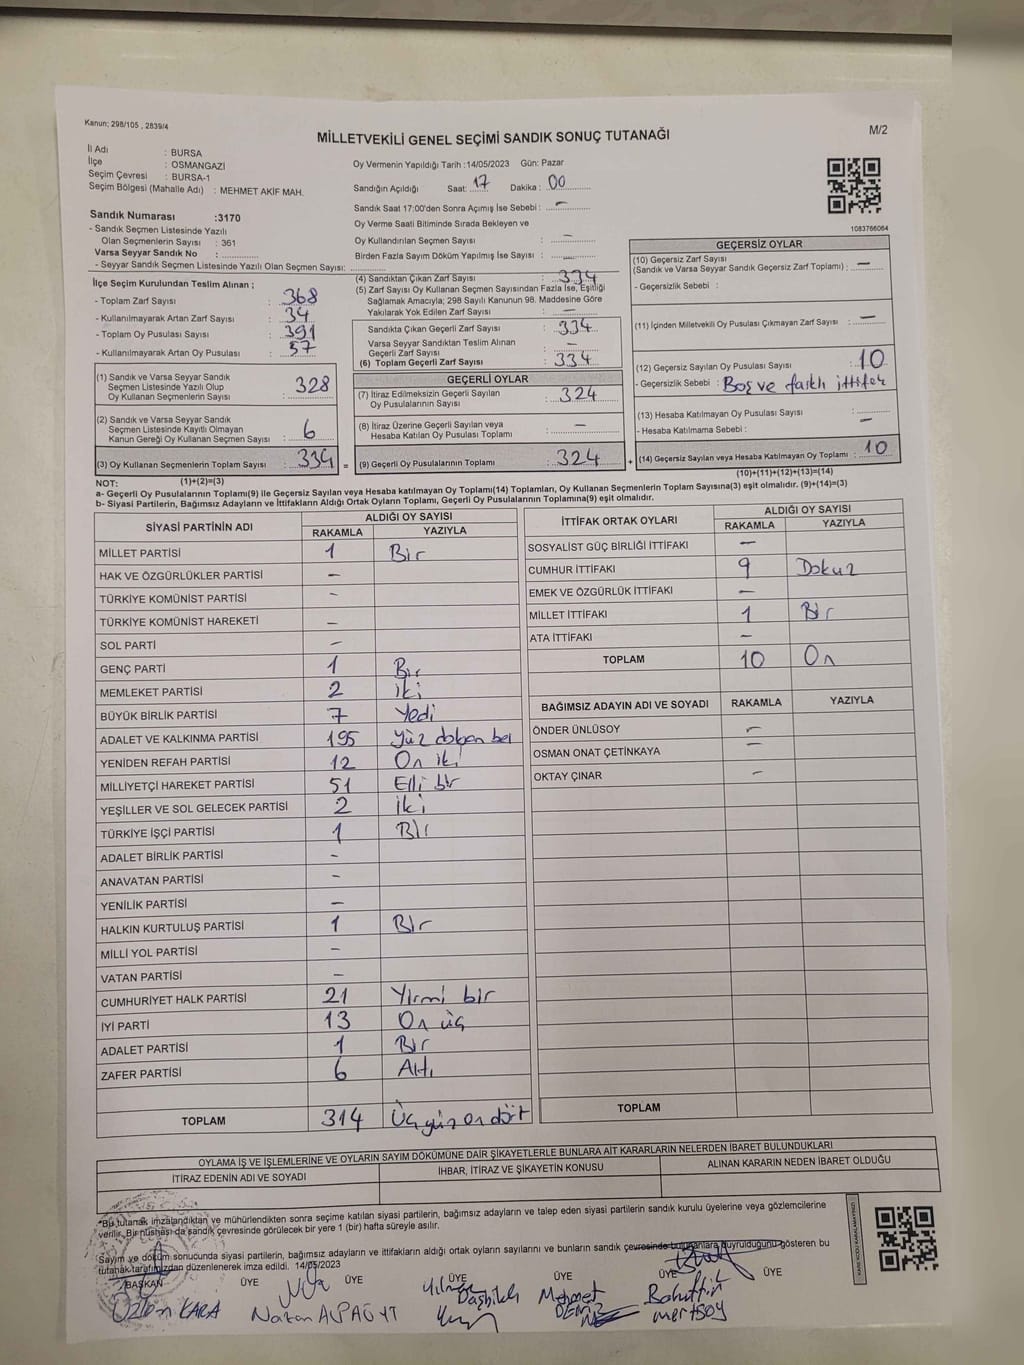 Kanun; 298/105 , 2839/4
M/2
MİLLETVEKİLİ GENEL SEÇİMİ SANDIK SONUÇ TUTANAĞI
İl Adı : BURSA
İlçe : OSMANGAZİ
Seçim Çevresi : BURSA-1
Seçim Bölgesi (Mahalle Adı) : MEHMET AKİF MAH.
Sandık Numarası :3170
- Sandık Seçmen Listesinde Yazılı
Olan Seçmenlerin Sayısı : 361
Varsa Seyyar Sandık No :
- Seyyar Sandık Seçmen Listesinde Yazılı Olan Seçmen Sayısı:
Oy Vermenin Yapıldığı Tarih :14/05/2023 Gün: Pazar
Sandığın Açıldığı Saat: 17 Dakika : 00
Sandık Saat 17:00'den Sonra Açımış İse Sebebi : -
Oy Verme Saati Bitiminde Sırada Bekleyen ve
Oy Kullandırılan Seçmen Sayısı : -
Birden Fazla Sayım Döküm Yapılmış İse Sayısı : -
1083766064
İlçe Seçim Kurulundan Teslim Alınan ;
- Toplam Zarf Sayısı : 368
- Kullanılmayarak Artan Zarf Sayısı : 34
- Toplam Oy Pusulası Sayısı : 391
- Kullanılmayarak Artan Oy Pusulası : 57
(1) Sandık ve Varsa Seyyar Sandık
Seçmen Listesinde Yazılı Olup
Oy Kullanan Seçmenlerin Sayısı : 328
(2) Sandık ve Varsa Seyyar Sandık
Seçmen Listesinde Kayıtlı Olmayan
Kanun Gereği Oy Kullanan Seçmen Sayısı : 6
(3) Oy Kullanan Seçmenlerin Toplam Sayısı : 334
(4) Sandıktan Çıkan Zarf Sayısı : 334
(5) Zarf Sayısı Oy Kullanan Seçmen Sayısından Fazla İse, Eşitliği
Sağlamak Amacıyla; 298 Sayılı Kanunun 98. Maddesine Göre
Yakılarak Yok Edilen Zarf Sayısı : -
Sandıkta Çıkan Geçerli Zarf Sayısı : 334
Varsa Seyyar Sandıktan Teslim Alınan
Geçerli Zarf Sayısı : -
(6) Toplam Geçerli Zarf Sayısı : 334
GEÇERLİ OYLAR
(7) İtiraz Edilmeksizin Geçerli Sayılan
Oy Pusulalarının Sayısı : 324
(8) İtiraz Üzerine Geçerli Sayılan veya
Hesaba Katılan Oy Pusulası Toplamı : -
= (9) Geçerli Oy Pusulalarının Toplamı : 324
GEÇERSİZ OYLAR
(10) Geçersiz Zarf Sayısı
(Sandık ve Varsa Seyyar Sandık Geçersiz Zarf Toplamı) : -
- Geçersizlik Sebebi :
(11) İçinden Milletvekili Oy Pusulası Çıkmayan Zarf Sayısı : -
(12) Geçersiz Sayılan Oy Pusulası Sayısı : 10
- Geçersizlik Sebebi : Boş ve farklı ittifak
(13) Hesaba Katılmayan Oy Pusulası Sayısı : -
- Hesaba Katılmama Sebebi :
+ (14) Geçersiz Sayılan veya Hesaba Katılmayan Oy Toplamı : 10
NOT: (1)+(2)=(3)
(10)+(11)+(12)+(13)=(14)
a- Geçerli Oy Pusulalarının Toplamı(9) ile Geçersiz Sayılan veya Hesaba katılmayan Oy Toplamı(14) Toplamları, Oy Kullanan Seçmenlerin Toplam Sayısına(3) eşit olmalıdır. (9)+(14)=(3)
b- Siyasi Partilerin, Bağımsız Adayların ve İttifakların Aldığı Ortak Oyların Toplamı, Geçerli Oy Pusulalarının Toplamına(9) eşit olmalıdır.
SİYASİ PARTİNİN ADI ALDIĞI OY SAYISI
RAKAMLA YAZIYLA
MİLLET PARTİSİ 1 Bir
HAK VE ÖZGÜRLÜKLER PARTİSİ -
TÜRKİYE KOMÜNİST PARTİSİ -
TÜRKİYE KOMÜNİST HAREKETİ -
SOL PARTİ -
GENÇ PARTİ 1 Bir
MEMLEKET PARTİSİ 2 iki
BÜYÜK BİRLİK PARTİSİ 7 Yedi
ADALET VE KALKINMA PARTİSİ 195 Yüz doksan beş
YENİDEN REFAH PARTİSİ 12 On iki
MİLLİYETÇİ HAREKET PARTİSİ 51 Elli bir
YEŞİLLER VE SOL GELECEK PARTİSİ 2 iki
TÜRKİYE İŞÇİ PARTİSİ 1 Bir
ADALET BİRLİK PARTİSİ -
ANAVATAN PARTİSİ -
YENİLİK PARTİSİ -
HALKIN KURTULUŞ PARTİSİ 1 Bir
MİLLİ YOL PARTİSİ -
VATAN PARTİSİ -
CUMHURİYET HALK PARTİSİ 21 Yirmi bir
İYİ PARTİ 13 On üç
ADALET PARTİSİ 1 Bir
ZAFER PARTİSİ 6 Altı
TOPLAM 314 Üç yüz on dört
İTTİFAK ORTAK OYLARI ALDIĞI OY SAYISI
RAKAMLA YAZIYLA
SOSYALİST GÜÇ BİRLİĞİ İTTİFAKI -
CUMHUR İTTİFAKI 9 Dokuz
EMEK VE ÖZGÜRLÜK İTTİFAKI -
MİLLET İTTİFAKI 1 Bir
ATA İTTİFAKI -
TOPLAM 10 On
BAĞIMSIZ ADAYIN ADI VE SOYADI RAKAMLA YAZIYLA
ÖNDER ÜNLÜSOY -
OSMAN ONAT ÇETİNKAYA -
OKTAY ÇINAR -
TOPLAM
OYLAMA İŞ VE İŞLEMLERİNE VE OYLARIN SAYIM DÖKÜMÜNE DAİR ŞİKAYETLERLE BUNLARA AİT KARARLARIN NELERDEN İBARET BULUNDUKLARI
İTİRAZ EDENİN ADI VE SOYADI İHBAR, İTİRAZ VE ŞİKAYETİN KONUSU ALINAN KARARIN NEDEN İBARET OLDUĞU
*Bu tutanak imzalandıktan ve mühürlendikten sonra seçime katılan siyasi partilerin, bağımsız adayların ve talep eden siyasi partilerin sandık kurulu üyelerine veya gözlemcilerine
verilir. Bir nüshası da sandık çevresinde görülecek bir yere 1 (bir) hafta süreyle asılır.
Sayım ve döküm sonucunda siyasi partilerin, bağımsız adayların ve ittifakların aldığı ortak oyların sayılarını ve bunların sandık çevresinde bulunanlara duyrulduğunu gösteren bu
tutanak tarafımızdan düzenlenerek imza edildi. 14/05/2023
BAŞKAN ÜYE ÜYE ÜYE ÜYE ÜYE ÜYE
Özlem KARA Nazan ALPAGUT Yılmaz Mehmet DEMİR Bahattin mertsoy